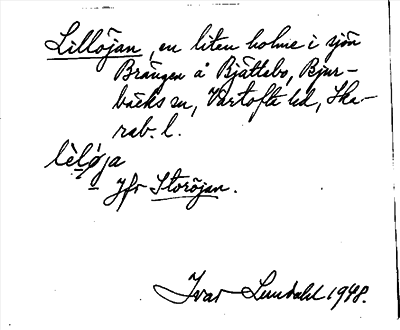 Lillöjan, en liten holme i sjön
Brängen å Bjättlebo, Bjur-
bäcks sn, Vartofta hd, Ska-
rab. l.
lèlø̀ja
Jfr Storöjan.
Ivar Lundahl 1948.